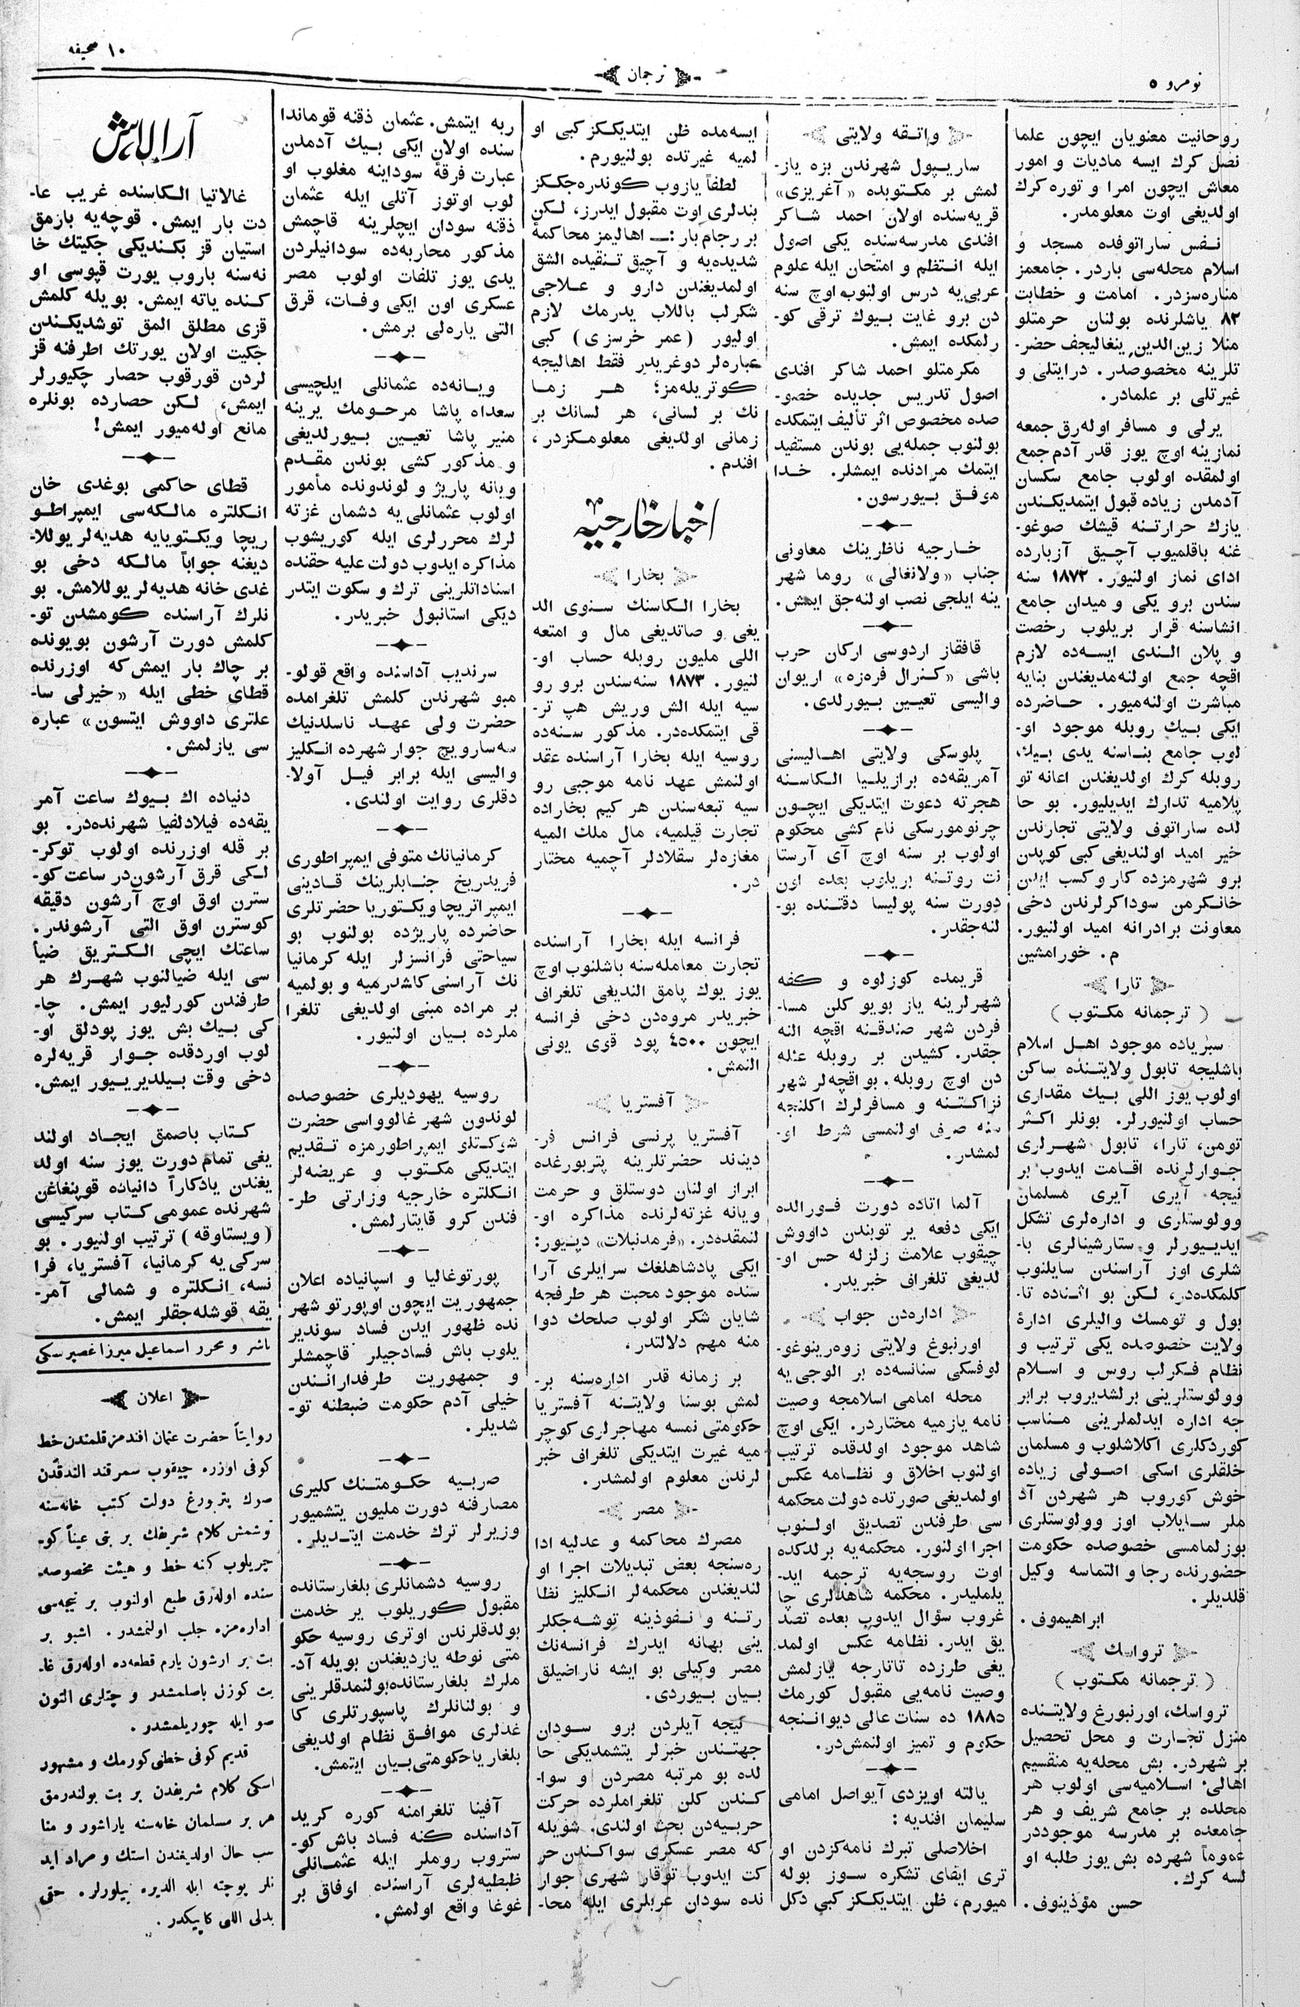 نومرو ٥
ترجمان
١٠ صحیفه
روحانیت معنویان ایچون علما
نصل کرك ایسه مادیات و امور
معاش ایچون امرا و توره کرك
اولدیغی اوت معلومدر.
نفس ساراتوفده مسجد و
اسلام محله‌سی باردر. جامعمز
مناره‌سزدر. امامت و خطابت
٨٢ یاشلرنده بولنان حرمتلو
منلا زین‌الدین ینغالیچف حضر-
تلرینه مخصوصدر. درایتلی و
غیرتلی بر علمادر.
یرلی و مسافر اوله‌رق جمعه
نمازینه اوچ یوز قدر آدم جمع
اولمقده اولوب جامع سکسان
آدمدن زیاده قبول ایتمدیکندن
یازك حرارتنه قیشك صوغو-
غنه باقلمیوب آچیق آزبارده
ادای نماز اولنیور. ١٨٧٢ سنه
سندن برو یکی و میدان جامع
انشاسنه قرار بریلوب رخصت
و پلان الندی ایسه‌ده لازم
اقچه جمع اولنه‌مدیغندن بنایه
مباشرت اولنه‌میور. حاضرده
ایکی بیك روبله موجود او-
لوب جامع بناسنه یدی بیك
روبله کرك اولدیغندن اعانه تو
پلامیه تدارك ایدیلیور. بو حا
لده ساراتوف ولایتی تجارندن
خیر امید اولندیغی کبی کوپدن
برو شهرمزده کار و کسب ایدن
خانکرمن سوداکرلرندن دخی
معاونت برادرانه امید اولنیور.
م. خورامشین
تارا
( ترجمانه مکتوب )
سبریاده موجود اهل اسلام
باشلیجه تابول ولایتنده ساکن
اولوب یوز اللی بیك مقداری
حساب اولنیورلر. بونلر اکثر
تومن، تارا، تابول شهرلری
جوارلرنده اقامت ایدوب بر
نیجه آیری آیری مسلمان
وولوستلری و اداره‌لری تشکل
ایدییورلر و ستارشینالری با-
شلری اوز آراسندن سایلنوب
کلمکده‌در، لکن بو اثناده تا-
بول و تومسك والیلری ادارهٔ
ولایت خصوصده یکی ترتیب و
نظام فکرلب روس و اسلام
وولوستلرینی برلشدیروب برابر
جه اداره ایدلملرینی مناسب
کوردکلری اکلاشلوب و مسلمان
خلقلری اسکی اصولی زیاده
خوش کوروب هر شهردن آد
ملر سایلاب اوز وولوستلری
بوزلمامسی خصوصده حکومت
حضورنده رجا و التماسه وکیل
قلدیلر.
ابراهیموف.
ترواسك
( ترجمانه مکتوب )
ترواسك، اورنبورغ ولایتنده
منزل تجارت و محل تحصیل
بر شهردر. بش محله‌یه منقسیم
اهالی اسلامیه‌سی اولوب هر
محلده بر جامع شریف و هر
جامعده بر مدرسه موجوددر
عموماً شهرده بش یوز طلبه او
لسه کرك.
حسن مؤذینوف.
واتقه ولایتی
ساریپول شهرندن بزه یاز-
لمش بر مکتوبده «آغریزی»
قریه‌سنده اولان احمد شاکر
افندی مدرسه‌سنده یکی اصول
ایله انتظم و امتحان ایله علوم
عربی‌یه درس اولنوب اوچ سنه
دن برو غایت بیوك ترقی کو-
رلمکده ایمش.
مکرمتلو احمد شاکر افندی
اصول تدریس جدیده خصو-
صده مخصوص اثر تألیف ایتمکده
بولنوب جمله‌یی بوندن مستفید
ایتمك مرادنده ایمشلر. خدا
موفق بیورسون.
خارجیه ناظرینك معاونی
جناب «ولانغالی» روما شهر
ینه ایلجی نصب اولنه‌جق ایمش.
قافقاز اردوسی ارکان حرب
باشی «کنرال فره‌زه» اریوان
والیسی تعیین بیورلدی.
پلوسکی ولایتی اهالیسنی
آمریقه‌ده برازیلیا الکاسنه
هجرته دعوت ایتدیکی ایچون
چرنومورسکی نام کشی محکوم
اولوب بر سنه اوچ آی آرستا
نت روتنه بریلوب بعده اون
دورت سنه پولیسا دقتنده بو-
لنه‌جقدر.
قریمده کوزلوه و کفه
شهرلرینه یاز بویو کلن مسا-
فردن شهر صندقنه اقچه النه
جقدر. کشیدن بر روبله عئله
دن اوچ روبله. بو اقچه‌لر شهر
نزاکتنه و مسافرلرك اکلنجه
سنه صرف اولنمسی شرط او-
لمشدر.
آلما اتاده دورت فورالده
ایکی دفعه یر توبندن داووش
چیقوب علامت زلزله حس او-
لدیغی تلغراف خبریدر.
اداره‌دن جواب
اورنبوغ ولایتی زوه‌رینوغو-
لوفسکی ستانسه‌ده بر الوجی‌یه
محله امامی اسلامجه وصیت
نامه یازمیه مختاردر. ایکی اوچ
شاهد موجود اولدقده ترتیب
اولنوب اخلاق و نظامه عکس
اولمدیغی صورتده دولت محکمه
سی طرفندن تصدیق اولنوب
اجرا اولنور. محکمه‌یه برلدکده
اوت روسجه‌یه ترجمه اید-
یلملیدر. محکمه شاهدلری چا
غروب سؤال ایدوب بعده تصد
یق ایدر. نظامه عکس اولمد
یغی طرزده تاتارجه یازلمش
وصیت نامه‌یی مقبول کورمك
١٨٨٥ ده سنات عالی دیواننجه
حکوم و تمیز اولنمش‌در.
یالته اویزدی آیواصل امامی
سلیمان افندیه:
اخلاصلی تبرك نامه‌کزدن او
تری ایفای تشکره سوز بوله
میورم، ظن ایتدیکز کبی دکل
ایسه‌مده ظن ایتدیکز کبی او
لمیه غیرتده بولنیورم.
لطفاً یازوب کوندره‌جکز
بندلری اوت مقبول ایدرز، لکن
بر رجام بار: — اهالیمز محاکمهٔ
شدیده‌یه و آچیق تنقیده الشق
اولمدیغندن دارو و علاجی
شکرلب باللاب یدرمك لازم
اولیور (عمر خرسزی) کبی
عباره‌لر دوغریدر فقط اهالیجه
کوتریله‌مز؛ هر زما
نك بر لسانی، هر لسانك بر
زمانی اولدیغی معلومکزدر،
افندم.
اخبار خارجیه
بخارا
بخارا الکاسنك سنوی الد
یغی و صاتدیغی مال و امتعه
اللی ملیون روبله حساب او-
لنیور. ١٨٧٣ سنه‌سندن برو رو
سیه ایله الش وریش هپ تر-
قی ایتمکده‌در. مذکور سنه‌ده
روسیه ایله بخارا آراسنده عقد
اولنمش عهد نامه موجبی رو
سیه تبعه‌سندن هر کیم بخاراده
تجارت قیلمیه، مال ملك المیه
مغازه‌لر سقلادلر آچمیه مختار
در.
فرانسه ایله بخارا آراسنده
تجارت معامله‌سنه باشلنوب اوچ
یوز یوك پامق الندیغی تلغراف
خبریدر مروه‌دن دخی فرانسه
ایچون ٤٥٠٠ پود قوی یونی
النمش.
آفستریا
آفستریا پرنسی فرانس فر-
دیناند حضرتلرینه پتربورغده
ابراز اولنان دوستلق و حرمت
ویانه غزته‌لرنده مذاکره او-
لنمقده‌در. «فرمدنبلات» دیور:
ایکی پادشاهلغك سرایلری آرا
سنده موجود محبت هر طرفجه
شایان شکر اولوب صلحك دوا
منه مهم دلالتدر.
بر زمانه قدر اداره‌سنه بر-
لمش بوسنا ولایتنه آفستریا
حکومتی نمسه مهاجرلری کوچر
میه غیرت ایتدیکی تلغراف خبر
لرندن معلوم اولمشدر.
مصر
مصرك محاکمه و عدلیه ادا
ره‌سنجه بعض تبدیلات اجرا او
لندیغندن محکمه‌لر انکلیز نظا
رتنه و نفوذینه توشه‌جکلر
ینی بهانه ایدرك فرانسه‌نك
مصر وکیلی بو ایشه ناراضیلق
بیان بیوردی.
نیجه آیلردن برو سودان
جهتندن خبرلر یتشمدیکی حا
لده بو مرتبه مصردن و سوا-
کندن کلن تلغراملرده حرکت
حربیه‌دن بحث اولندی. شویله
که مصر عسکری سواکندن حر
کت ایدوب توقار شهری جوار
نده سودان عربلری ایله محا-
ربه ایتمش. عثمان ذقنه قوماندا
سنده اولان ایکی بیك آدمدن
عبارت فرقهٔ سوداینه مغلوب او
لوب اوتوز آتلی ایله عثمان
ذقنه سودان ایچلرینه قاچمش
مذکور محاربه‌ده سودانیلردن
یدی یوز تلفات اولوب مصر
عسکری اون ایکی وفات، قرق
التی یاره‌لی برمش.
ویانه‌ده عثمانلی ایلچیسی
سعداه پاشا مرحومك یرینه
منیر پاشا تعیین بیورلدیغی
و مذکور کشی بوندن مقدم
ویانه پاریژ و لوندونده مأمور
اولوب عثمانلی‌یه دشمان غزته
لرك محررلری ایله کوریشوب
مذاکره ایدوب دولت علیه حقنده
اسناداتلرینی ترك و سکوت ایتدر
دیکی استانبول خبریدر.
سرندیب آداسنده واقع قولو-
مبو شهرندن کلمش تلغرامده
حضرت ولی عهد ناسلدنیك
سه‌سارویچ جوار شهرده انکلیز
والیسی ایله برابر فیل آولا-
دقلری روایت اولندی.
کرمانیانك متوفی ایمپراطوری
فریدریخ جنابلرینك قادینی
ایمپراتریچا ویکتوریا حضرتلری
حاضرده پاریژده بولنوب بو
سیاحتی فرانسزلر ایله کرمانیا
نك آراسنی کاشدرمیه و بولمیه
بر مراده مبنی اولدیغی تلغرا
ملرده بیان اولنیور.
روسیه یهودیلری خصوصده
لوندون شهر غالوواسی حضرت
شوکتلو ایمپراطورمزه تقدیم
ایتدیکی مکتوب و عریضه‌لر
انکلتره خارجیه وزارتی طر-
فندن کرو قایتارلمش.
پورتوغالیا و اسپانیاده اعلان
جمهوریت ایچون اوپورتو شهر
نده ظهور ایدن فساد سوندیر
یلوب باش فسادجیلر قاچمشلر
و جمهوریت طرفدارانندن
خیلی آدم حکومت ضبطنه تو-
شدیلر.
صربیه حکومتنك کلیری
مصارفنه دورت ملیون یتشمیور
وزیرلر ترك خدمت ایتدیلر.
روسیه دشمانلری بلغارستانده
مقبول کوریلوب یر خدمت
بولدقلرندن اوتری روسیه حکو
متی نوطه یازدیغندن بویله آد-
ملرك بلغارستانده بولنمدقلرینی
و بولنانلرك پاسپورتلری کا
غدلری موافق نظام اولدیغی
بلغاریا حکومتی بیان ایتمش.
آفینا تلغرامنه کوره کرید
آداسنده کنه فساد باش کو-
ستروب روملر ایله عثمانلی
ظبطیه‌لری آراسنده اوفاق بر
غوغا واقع اولمش.
آرالاش
غالاتیا الکاسنده غریب عا-
دت بار ایمش. قوچه‌یه بارمق
استیان قز بکندیکی جکیتك خا
نه‌سنه باروب یورت قپوسی او
کنده یاته ایمش. بویله کلمش
قزی مطلق المق توشدیکندن
جکیت اولان یورتك اطرفنه قز
لردن قورقوب حصار چکیورلر
ایمش، لکن حصارده بونلره
مانع اوله‌میور ایمش!
قطای حاکمی بوغدی خان
انکلتره مالکه‌سی ایمپراطو
ریچا ویکتویایه هدیه‌لر یوللا-
دیغنه جواباً مالکه دخی بو
غدی خانه هدیه‌لر یوللامش. بو
نلرك آراسنده کومشدن تو-
کلمش دورت آرشون بویونده
بر چاك بار ایمش‌که اوزرنده
قطای خطی ایله «خیرلی سا-
علتری داووش ایتسون» عباره
سی یازلمش.
دنیاده اك بیوك ساعت آمر
یقه‌ده فیلادلفیا شهرنده‌در. بو
بر قله اوزرنده اولوب توکر-
لکی قرق آرشون‌در ساعت کو-
سترن اوق اوچ آرشون دقیقه
کوسترن اوق التی آرشوندر.
ساعتك ایچی الکتریق ضیأ
سی ایله ضیالنوب شهرك هر
طرفندن کورلیور ایمش. چا-
کی بیك بش یوز پودلق او-
لوب اوردقده جوار قریه‌لره
دخی وقت بیلدیرییور ایمش.
کتاب باصمق ایجاد اولند
یغی تمام دورت یوز سنه اولد
یغندن یادکاراً دانیاده قوپنغاغن
شهرنده عمومی کتاب سرکیسی
(ویستاوقه) ترتیب اولنیور. بو
سرکی‌یه کرمانیا، آفستریا، فرا
نسه، انکلتره و شمالی آمر-
یقه قوشله‌جقلر ایمش.
ناشر و محرر اسماعیل میرزا غصپرنسکی
اعلان
روایتاً حضرت عثمان افندمز قلمندن خط
کوفی اوزره چیقوب سمرقند الندقدن
صوك پترورغ دولت کتب خانه‌سنه
توشمش کلام شریفك بر بتی عیناً کو-
چریلوب کنه خط و هیئت مخصوصه
سنده اوله‌رق طبع اولنوب بر نیجه‌سی
اداره‌مزه جلب اولنمشدر. اشبو بر
بت بر ارشون یارم قطعه‌ده اوله‌رق غا-
یت کوزل باصلمشدر و چتلری التون
صو ایله چوریلمشدر.
قدیم کوفی خطنی کورمك و مشهور
اسکی کلام شریفدن بر بت بولندرمق
هر بر مسلمان خانه‌سنه یاراشور و منا
سب حال اولدیغندن استك و مراد اید
نلر پوچته ایله الدیره بیلورلر. حقی
بدلی اللی کاپیکدر.